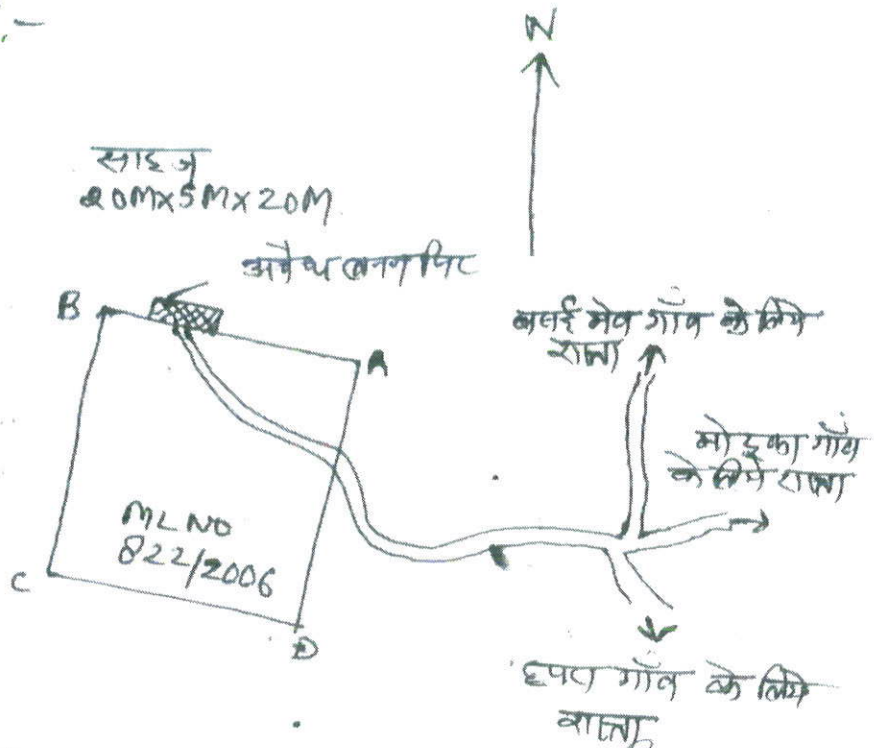 N
साइज
20M×5M×20M
अवैध खनन पिट
B
A
बसई मेव गाँव के लिये
रास्ता
मोडूका गाँव
के लिये रास्ता
ML NO
822/2006
C
D
गाँव के लिये
रास्ता